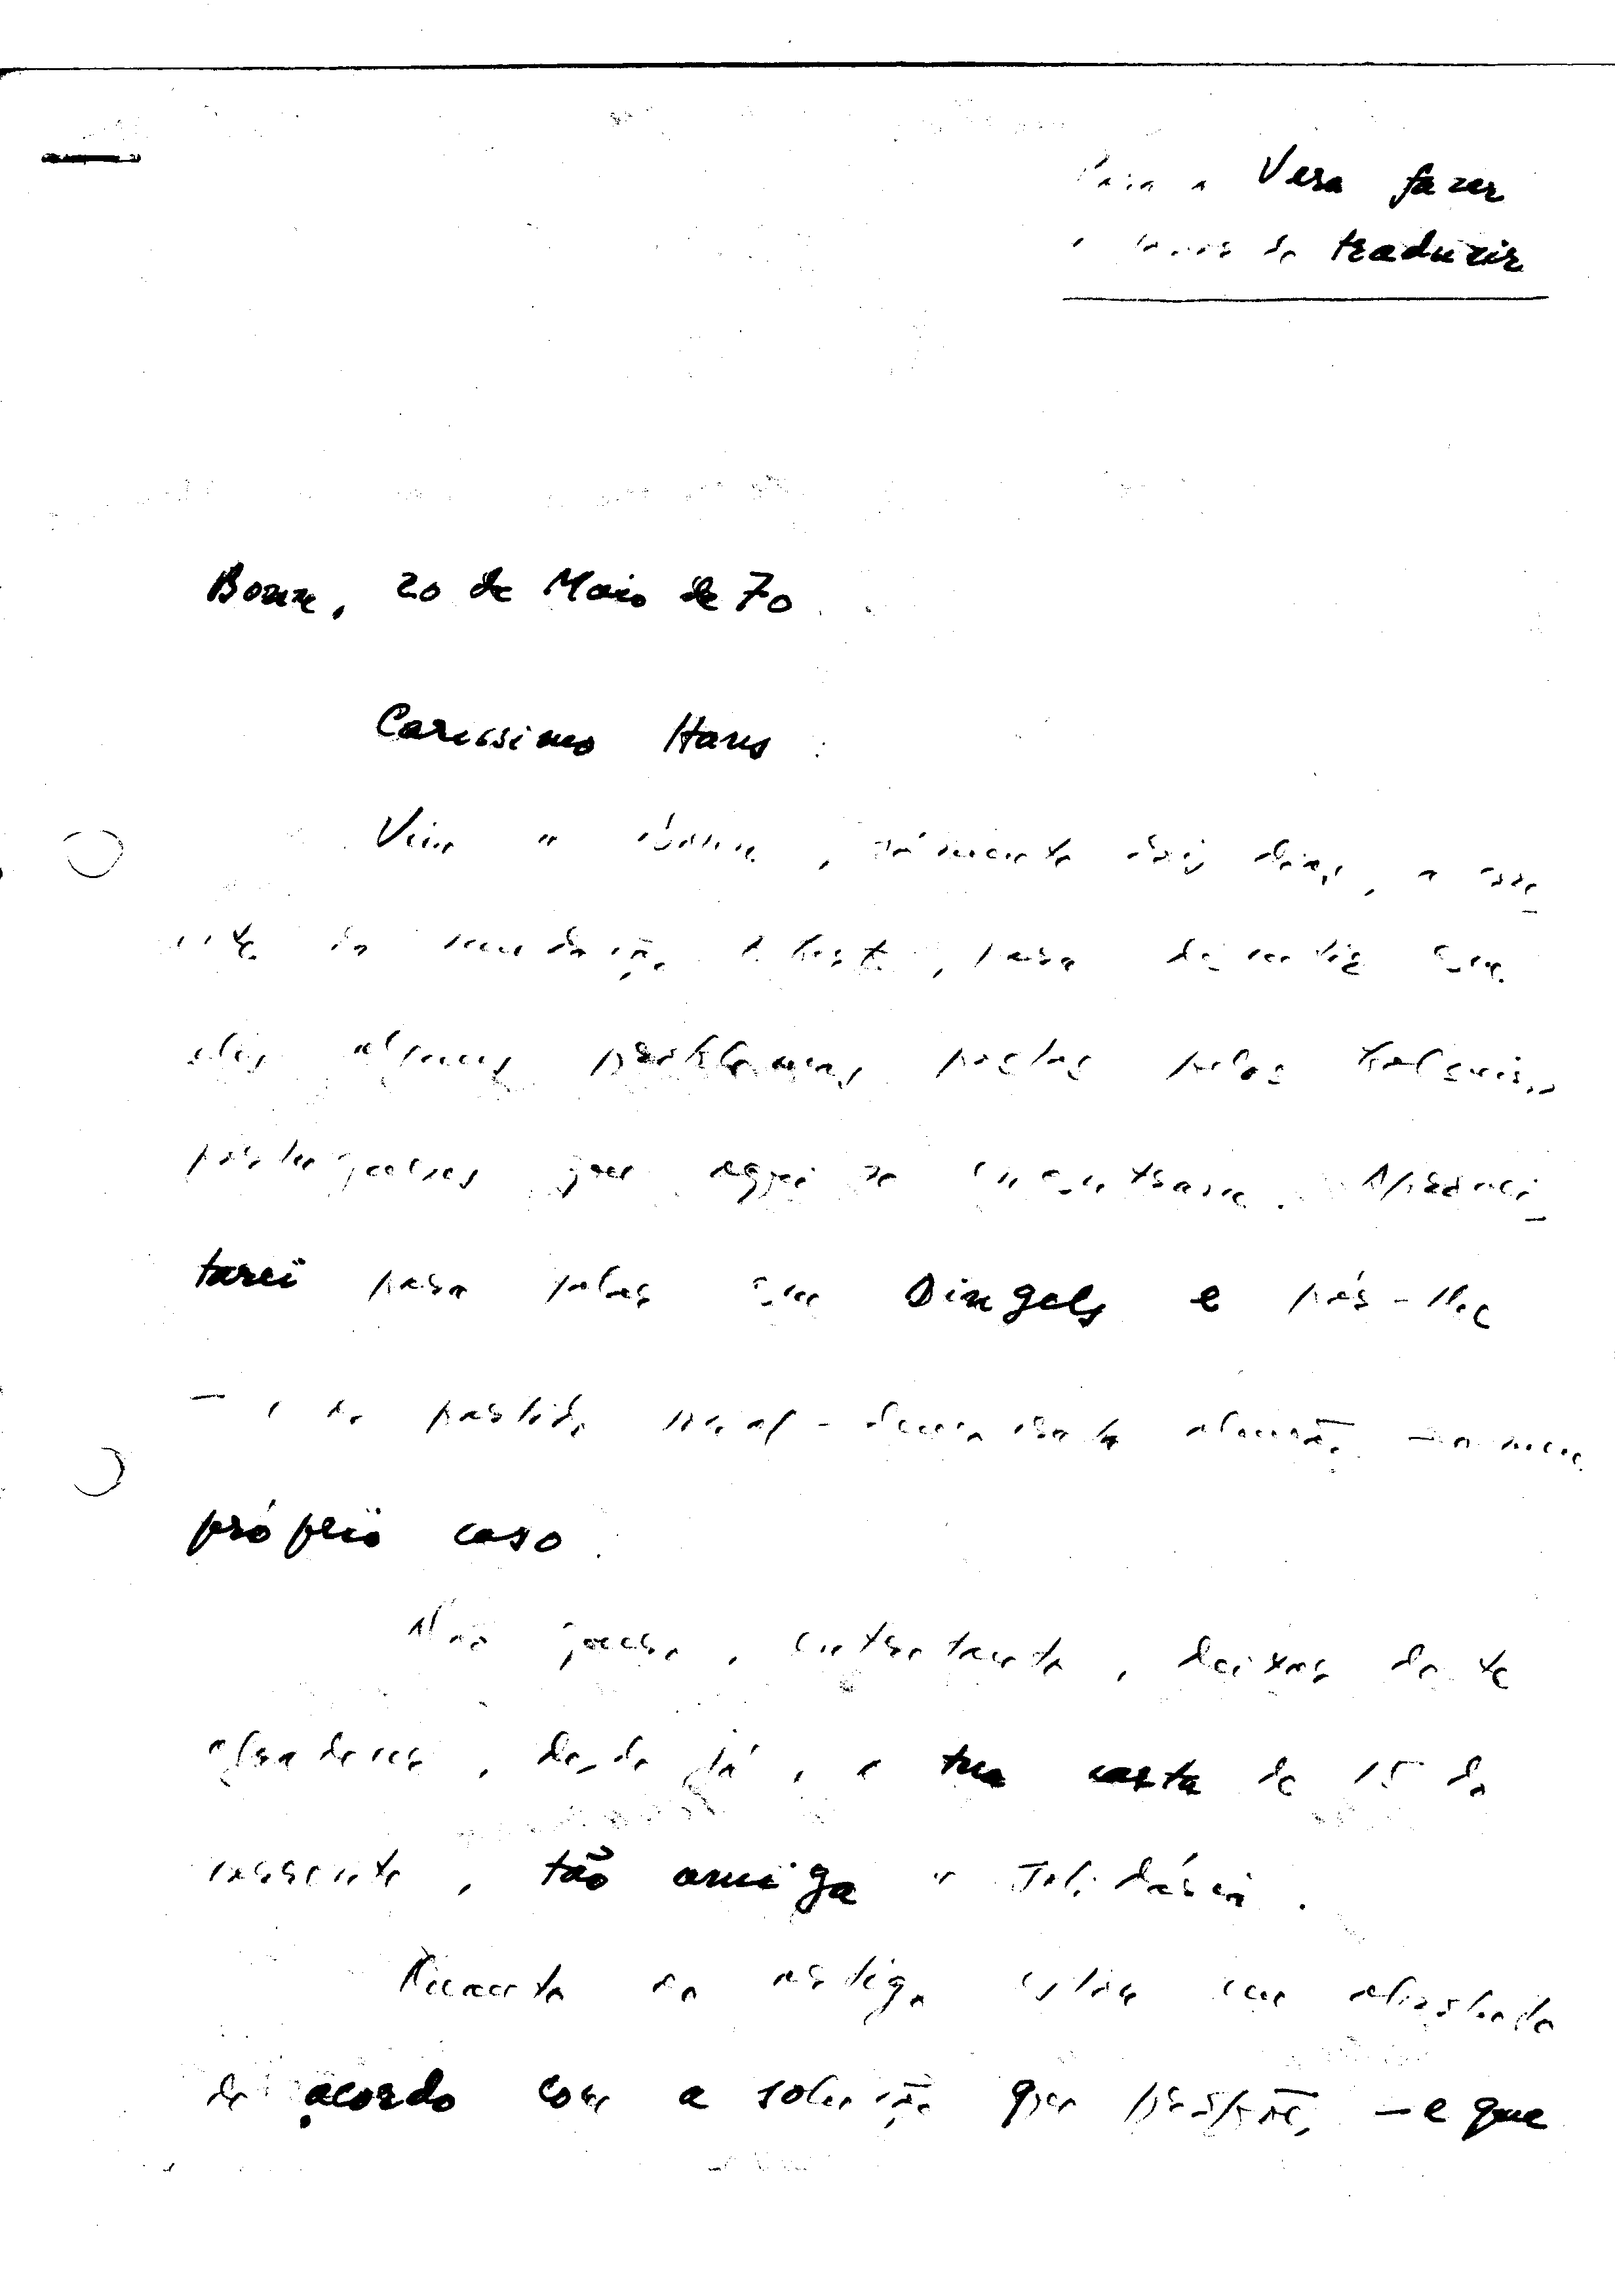 Para a Vera fazer
o favor de traduzir
Bonn, 20 de Maio de 70
Caríssimo Hans:
Vim a Bonn, sómente dois dias, a
da, para discutir com
eles alguns problemas postos pelos
portugueses que aqui se encontram. Aprovei_
tarei para falar com Dingels e pôr-lhe
— e ao partido social-democrata alemão — o meu
próprio caso.
Não quero, entretanto, deixar de te
agradecer, desde já, a tua carta de 15 do
corrente, tão amiga e solidária.
Quanto ao artigo estou em absoluto
de acordo com a solução que propões, — e que